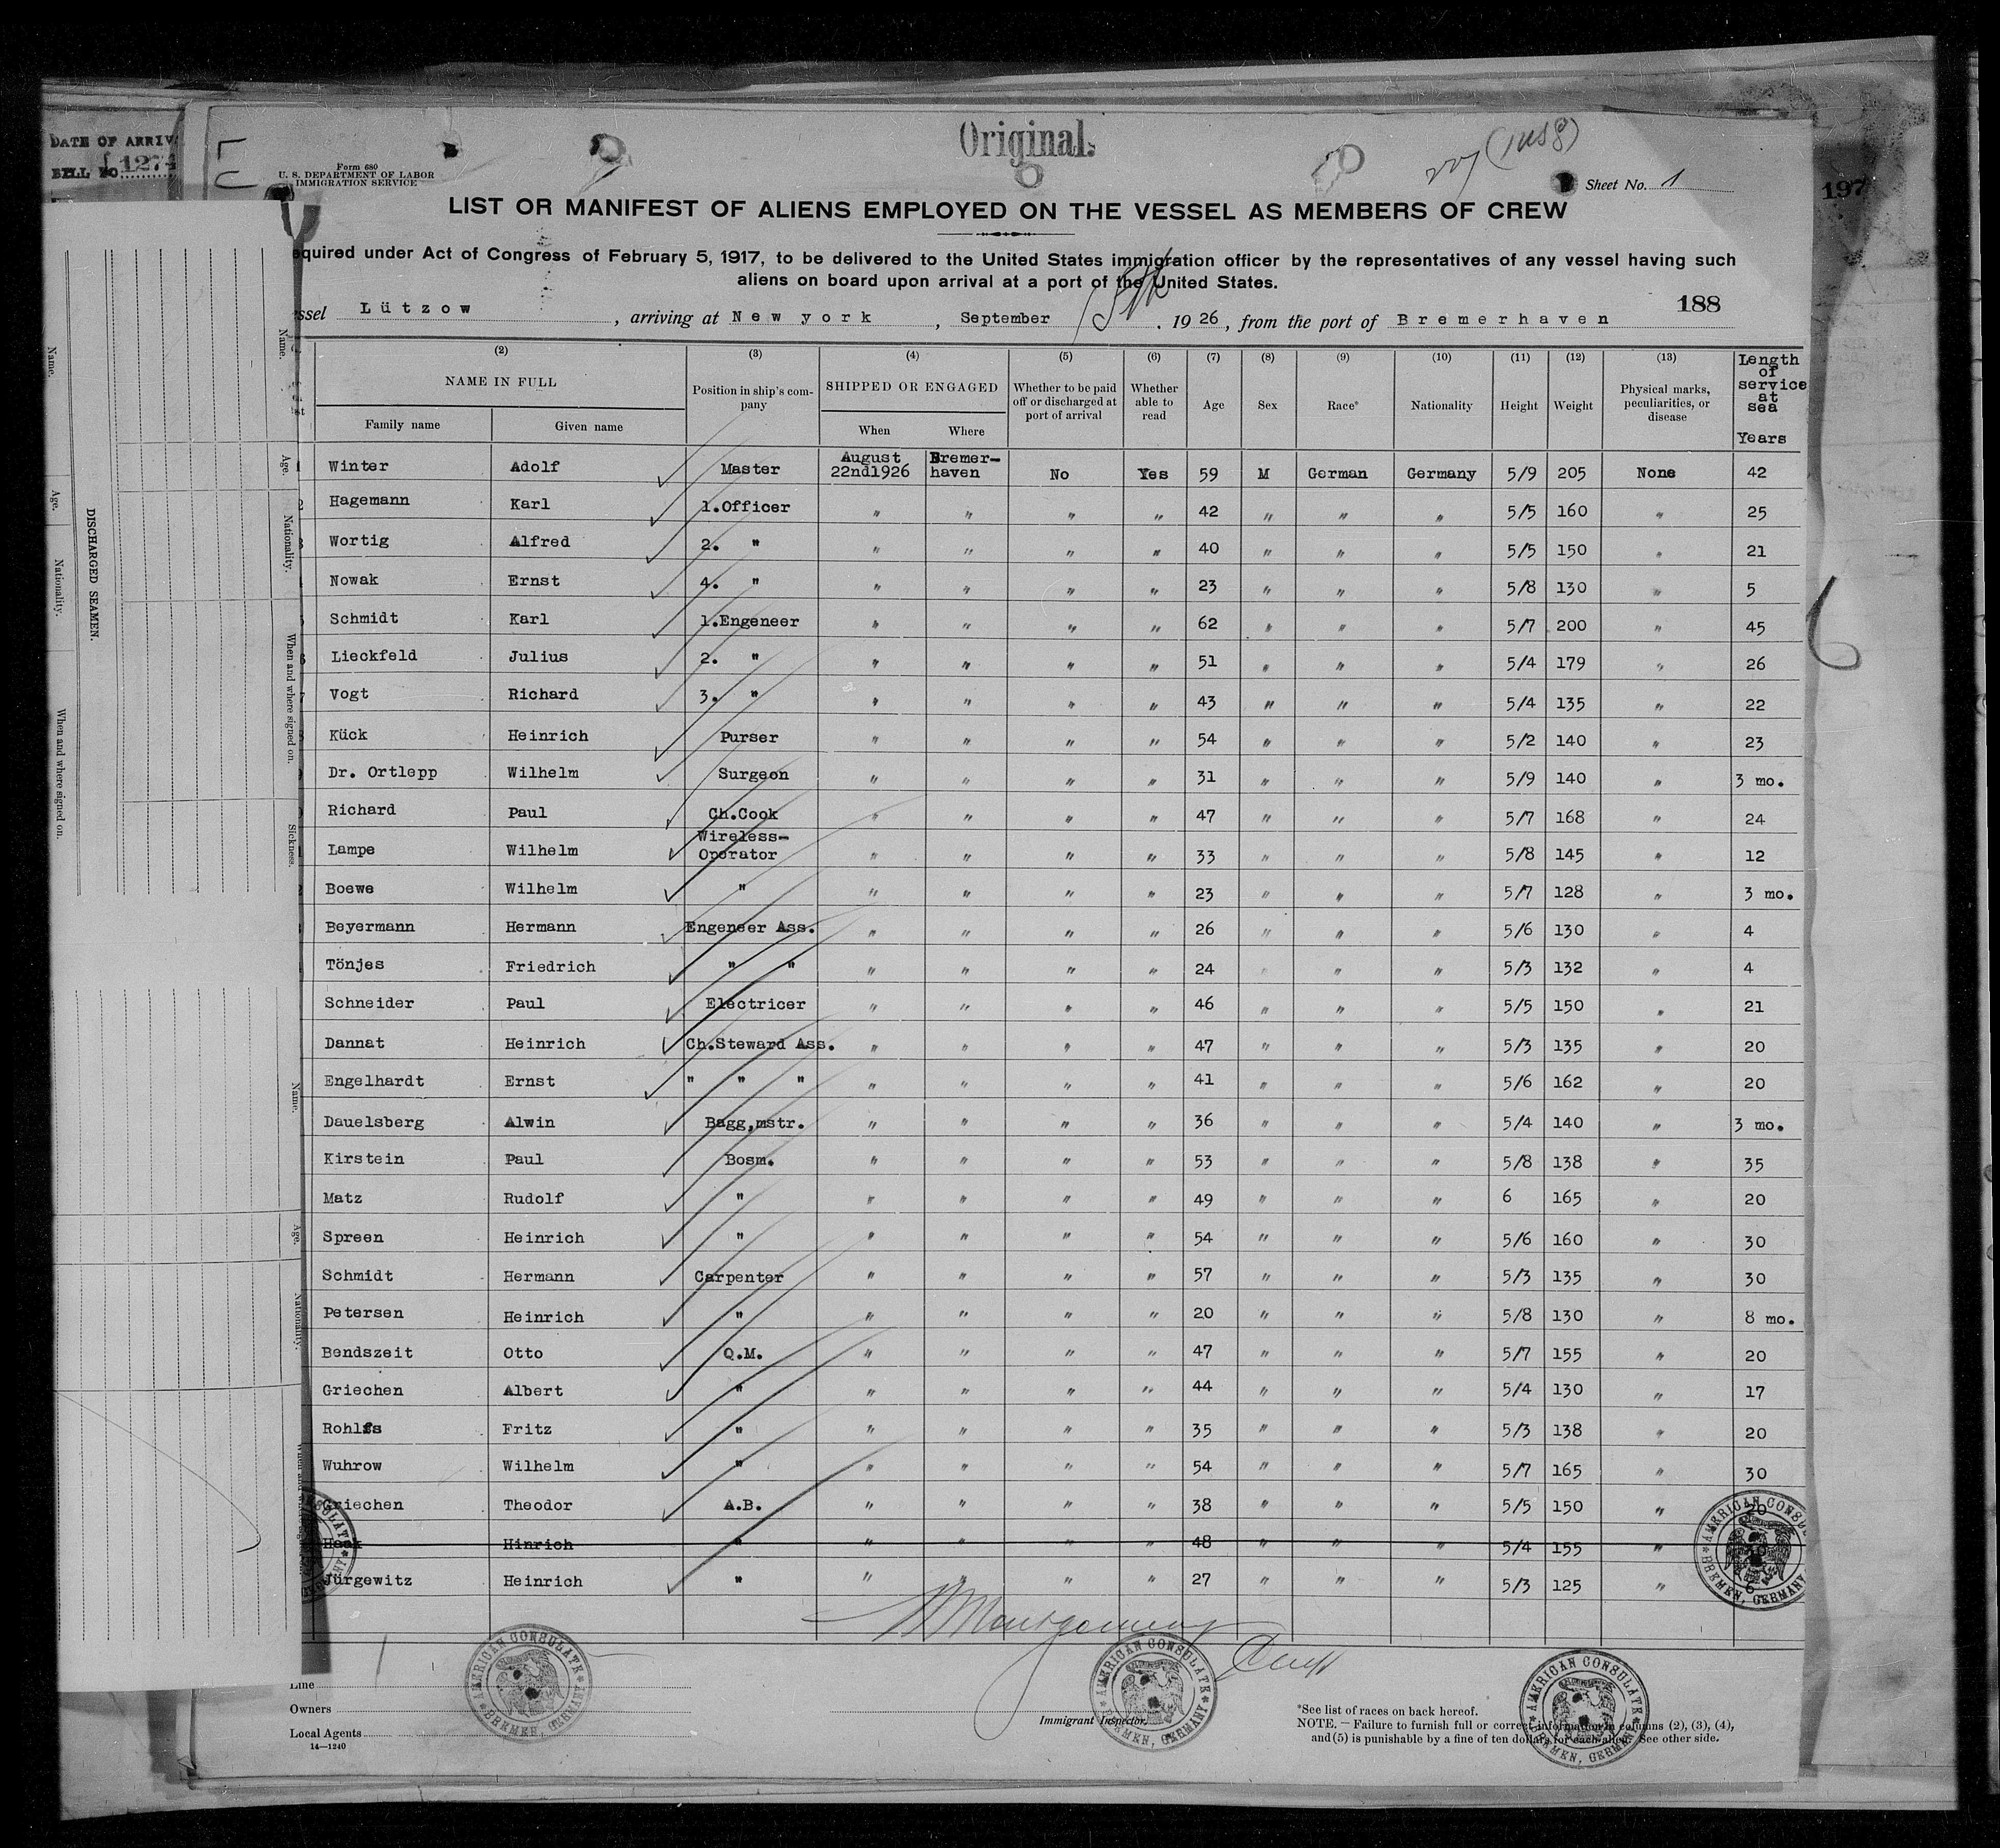 DATE OF ARRIV
BILL NO. 1274
Original.
Form 680
U. S. DEPARTMENT OF LABOR
IMMIGRATION SERVICE
Sheet No. 1
197
LIST OR MANIFEST OF ALIENS EMPLOYED ON THE VESSEL AS MEMBERS OF CREW
equired under Act of Congress of February 5, 1917, to be delivered to the United States immigration officer by the representatives of any vessel having such
aliens on board upon arrival at a port of the United States.
188
ssel Lützow, arriving at New york, September 1926, from the port of Bremerhaven
(2) (3) (4) (5) (6) (7) (8) (9) (10) (11) (12) (13)
NAME IN FULL
Family name Given name
Position in ship's com-
pany
SHIPPED OR ENGAGED
When Where
Whether to be paid
off or discharged at
port of arrival
Whether
able to
read
Age Sex Race* Nationality Height Weight
Physical marks,
peculiarities, or
disease
Length
of
service
at
sea
Years
Winter Adolf Master August 22nd1926 Bremer-haven No Yes 59 M German Germany 5/9 205 None 42
Hagemann Karl 1.Officer " " " " 42 " " " 5/5 160 " 25
Wortig Alfred 2. " " " " " 40 " " " 5/5 150 " 21
Nowak Ernst 4. " " " " " 23 " " " 5/8 130 " 5
Schmidt Karl 1.Engeneer " " " " 62 " " " 5/7 200 " 45
Lieckfeld Julius 2. " " " " " 51 " " " 5/4 179 " 26
Vogt Richard 3. " " " " " 43 " " " 5/4 135 " 22
Kück Heinrich Purser " " " " 54 " " " 5/2 140 " 23
Dr. Ortlepp Wilhelm Surgeon " " " " 31 " " " 5/9 140 " 3 mo.
Richard Paul Ch.Cook " " " " 47 " " " 5/7 168 " 24
Lampe Wilhelm Wireless-Operator " " " " 33 " " " 5/8 145 " 12
Boewe Wilhelm " " " " " 23 " " " 5/7 128 " 3 mo.
Beyermann Hermann Engeneer Ass. " " " " 26 " " " 5/6 130 " 4
Tönjes Friedrich " " " " " " 24 " " " 5/3 132 " 4
Schneider Paul Electricer " " " " 46 " " " 5/5 150 " 21
Dannat Heinrich Ch.Steward Ass. " " " " 47 " " " 5/3 135 " 20
Engelhardt Ernst " " " " " " " 41 " " " 5/6 162 " 20
Dauelsberg Alwin Bagg,mstr. " " " " 36 " " " 5/4 140 " 3 mo.
Kirstein Paul Bosm. " " " " 53 " " " 5/8 138 " 35
Matz Rudolf " " " " " 49 " " " 6 165 " 20
Spreen Heinrich " " " " " 54 " " " 5/6 160 " 30
Schmidt Hermann Carpenter " " " " 57 " " " 5/3 135 " 30
Petersen Heinrich " " " " " 20 " " " 5/8 130 " 8 mo.
Bendszeit Otto Q.M. " " " " 47 " " " 5/7 155 " 20
Griechen Albert " " " " " 44 " " " 5/4 130 " 17
Rohlfs Fritz " " " " " 35 " " " 5/3 138 " 20
Wuhrow Wilhelm " " " " " 54 " " " 5/7 165 " 30
Griechen Theodor A.B. " " " " 38 " " " 5/5 150 " 20
Haak Hinrich " " " " " 48 " " " 5/4 155 "
Jürgewitz Heinrich " " " " " 27 " " " 5/3 125 " 6
Montgomery
Line
Owners
Local Agents
14—1240
Immigrant Inspector.
*See list of races on back hereof.
NOTE.—Failure to furnish full or correct information in columns (2), (3), (4),
and (5) is punishable by a fine of ten dollars for each alien. See other side.
AMERICAN CONSULATE BREMEN, GERMANY
AMERICAN CONSULATE BREMEN, GERMANY
AMERICAN CONSULATE BREMEN, GERMANY
AMERICAN CONSUL BREMEN, GERMANY
DISCHARGED SEAMEN.
Name. Age. Nationality. When and where signed on.
Name. Age. Nationality. When and where signed on. Sickness.
Name. Age. Nationality.